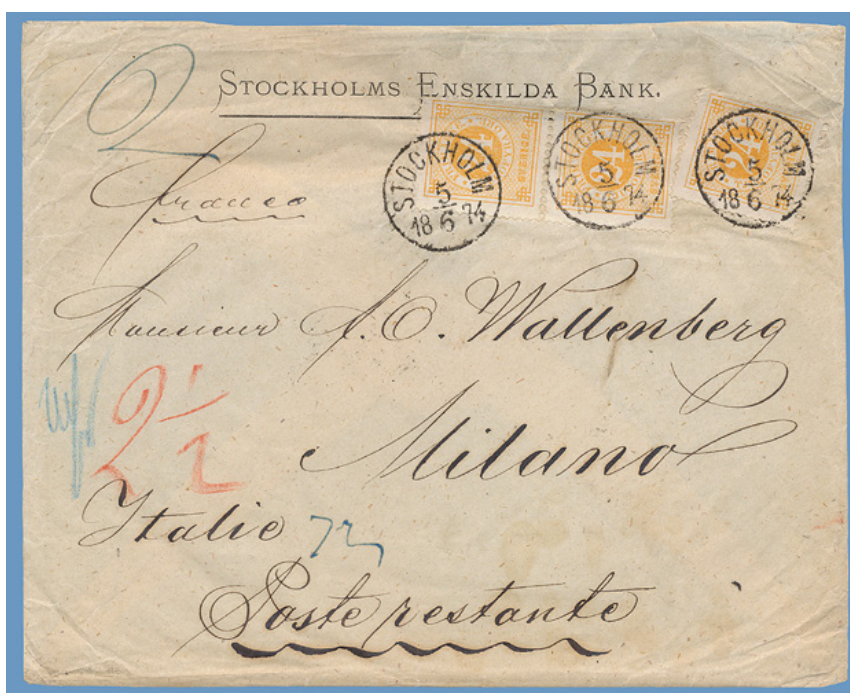 2
STOCKHOLMS ENSKILDA BANK.
STOCKHOLM
5
18 6 74
24
STOCKHOLM
5
18 6 74
24
STOCKHOLM
5
18 6 74
Franco
Monsieur A. O. Wallenberg
2 1/2
Milano
Italie 72
Poste restante